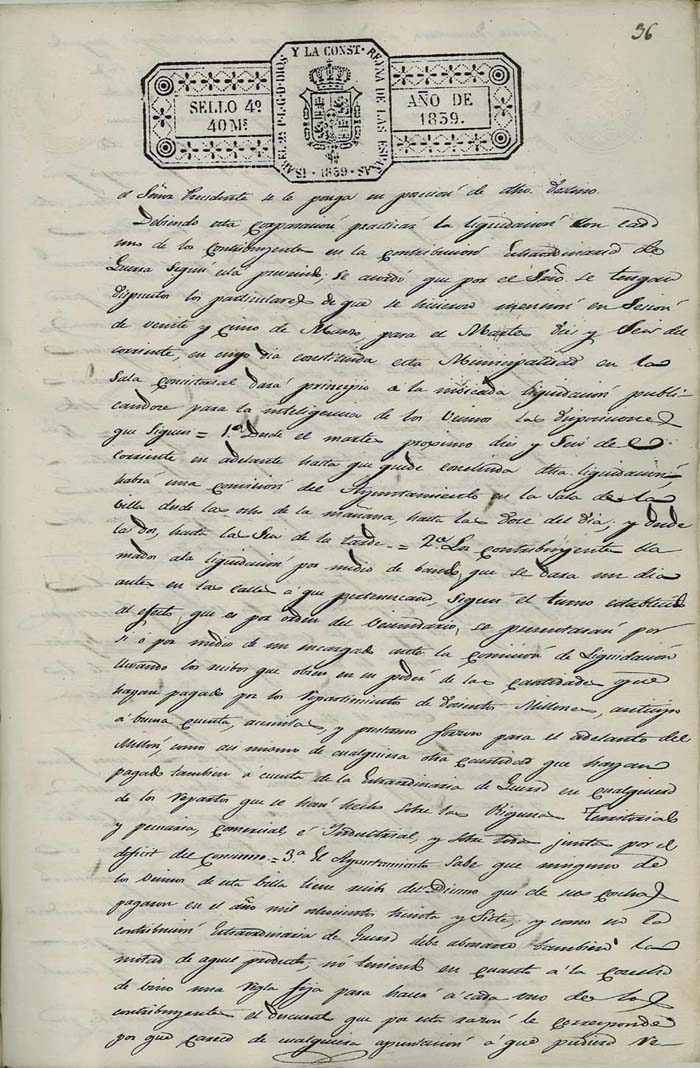 36
ISABEL 2ª P.L.G.D.DIOS Y LA CONST. REYNA DE LAS ESPAÑAS
SELLO 4º
40 Ms
AÑO DE
1839.
1839
el Señor Presidente se le ponga en posesion de dho. destino.
Debiendo esta corporacion practicar la liquidacion con cada
uno de los contribuyentes en la contribucion extraordinaria de
Guerra segun esta prevenido; se acordó que por el Srio. se tengan
dispuestos los particulares de que se hicieron mencion en Sesion
de veinte y cinco de Marzo, para el Martes diez y seis del
corriente, en cuyo dia constituida esta Municipalidad en la
Sala consistorial dará principio a la indicada liquidacion publi-
candose para la inteligencia de los vecinos las disposiciones
que siguen = 1ª Desde el martes proximo diez y seis del
corriente en adelante hasta que quede concluida dha. liquidacion,
habrá una comision del Ayuntamiento en la Sala de la
villa desde las ocho de la mañana, hasta las doce del dia; y desde
las dos, hasta las seis de la tarde = 2ª Los contribuyentes lla
mados ála liquidacion por medio de bando, que se dara un dia
antes en las calles á que pertenezcan segun el turno establecido
al efecto, que es por orden del vecindario, se presentarán por
si ó por medio de un encargado ante la comision de Liquidacion
llevando los recibos que obren en su poder de las cantidades que
hayan pagado por los repartimientos de doscientos Millones, anticipo
á buena cuenta, y prestamo forzoso para el adelanto del
Millon, como asi mismo de cualquiera otra cantidad que hayan
pagado tambien á cuenta de la Extraordinaria de Guerra en cualquiera
de los repartos que se han hecho sobre las Riquezas Territorial
y pecuaria, comercial, é Industrial, y sobre todas juntas por el
deficit del Consumo = 3ª El Ayuntamiento sabe que ninguno de
los vecinos de esta villa tiene recibo del Diezmo que de sus cosechas
pagaron en el año mil ochocientos treinta y siete, y como en la
contribucion Extraordinaria de Guerra debe abonarse tambien la
mitad de aquel producto, nó teniendo en cuanto á la cosecha
de vino una regla fija para hacer á cada uno de los
contribuyentes el descuento que por esta razon le corresponde
por que carece de cualquiera apuntacion á que pudiera re-